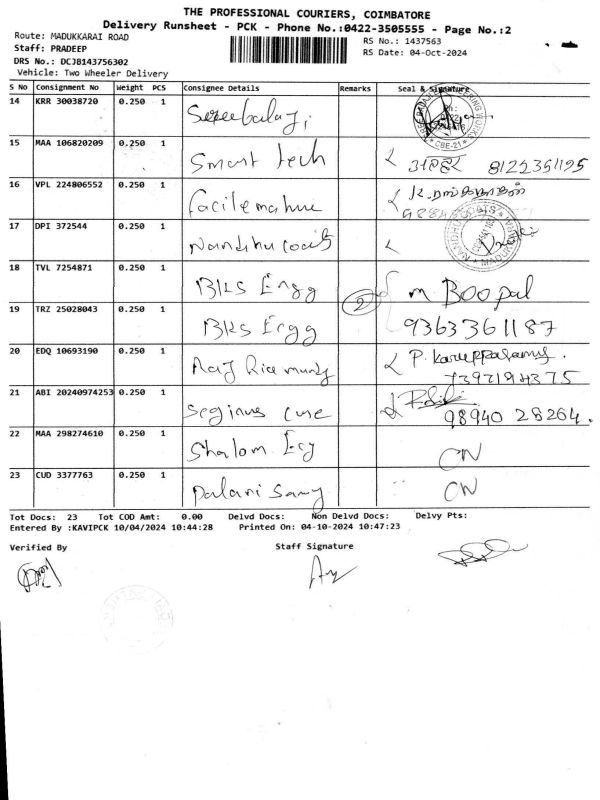 THE PROFESSIONAL COURIERS, COIMBATORE
Delivery Runsheet - PCK - Phone No.:0422-3505555 - Page No.:2
Route: MADUKKARAI ROAD
RS No.: 1437563
Staff: PRADEEP
RS Date: 04-Oct-2024
DRS No.: DCJB143756302
Vehicle: Two Wheeler Delivery
S No Consignment No Weight PCS Consignee Details Remarks Seal & Signature
14 KRR 30038720 0.250 1 Sreebalaji
15 MAA 106820209 0.250 1 Smart tech 8122351195
16 VPL 224806552 0.250 1
17 DPI 372544 0.250 1
18 TVL 7254871 0.250 1 BKS Engg 2 M Boopal
19 TRZ 25028043 0.250 1 BKS Engg 9363361187
20 EDQ 10693190 0.250 1 P. Karuppasamy.
7397194375
21 ABI 20240974253 0.250 1 98940 28264.
22 MAA 298274610 0.250 1 Shalom CN
23 CUD 3377763 0.250 1 Palani Samy CN
Tot Docs: 23 Tot COD Amt: 0.00 Delvd Docs: Non Delvd Docs: Delvy Pts:
Entered By :KAVIPCK 10/04/2024 10:44:28 Printed On: 04-10-2024 10:47:23
Verified By Staff Signature